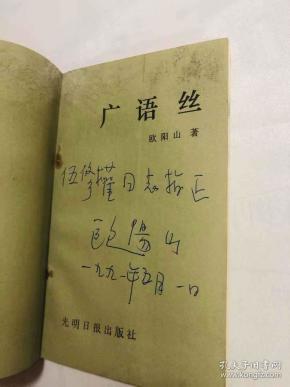 广语丝
欧阳山 著
伍修权同志指正
欧阳山
一九九一年五月一日
光明日报出版社
孔夫子旧书网